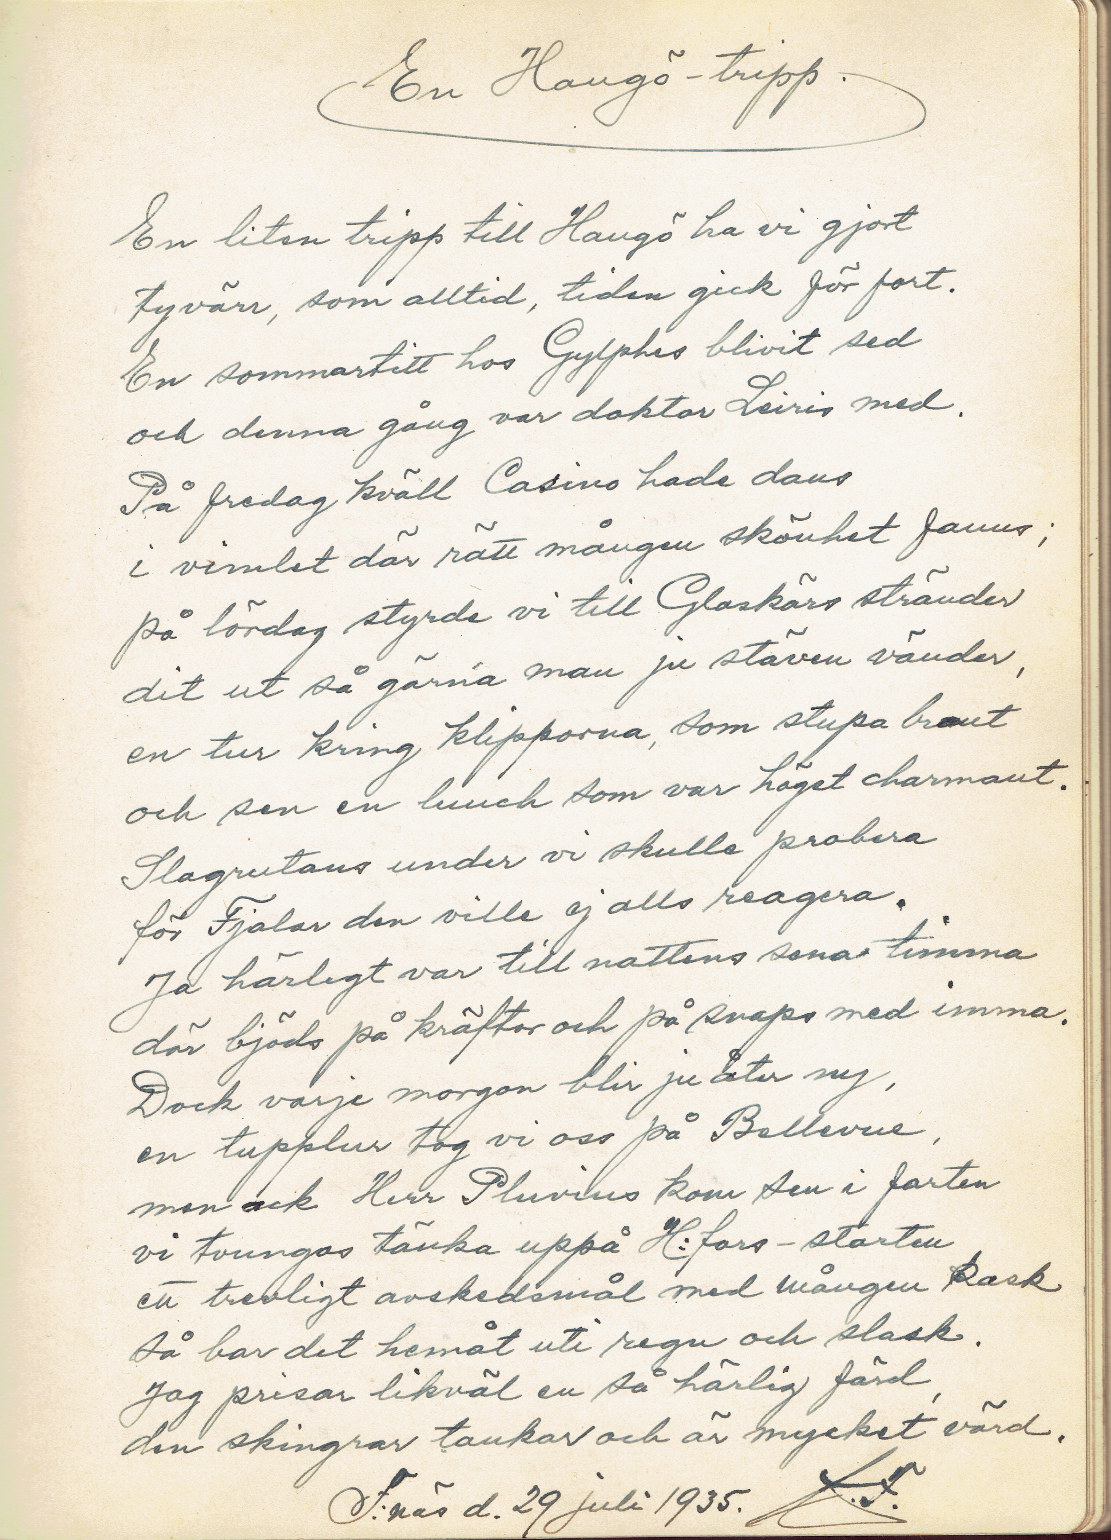 En Hangö-tripp.
En liten tripp till Hangö ha vi gjort
tyvärr, som alltid, tiden gick för fort.
En sommartitt hos Gylphes blivit sed
och denna gång var doktor Leiris med.
På fredag kväll Casino hade dans
i vimlet där rätt mången skönhet fanns;
på lördag styrde vi till Glaskärs stränder
dit ut så gärna man ju stäven vänder,
en tur kring klipporna, som stupa brant
och sen en lunch som var högst charmant.
Slagrutans under vi skulle probera
för Fjalar den ville ej alls reagera.
Ja härligt var till nattens sena timma
där bjöds på kräftor och på snaps med imma.
Dock varje morgon blir ju åter ny,
en tupplur tog vi oss på Bellevue,
men ack Herr Pluvius kom sen i farten
vi tvungos tänka uppå H:fors-starten
ett trevligt avskedsmål med mången kask
så bar det hemåt uti regn och slask.
Jag prisar likväl en så härlig färd,
den skingrar tankar och är mycket värd.
F:näs d. 29 juli 1935. L.F.